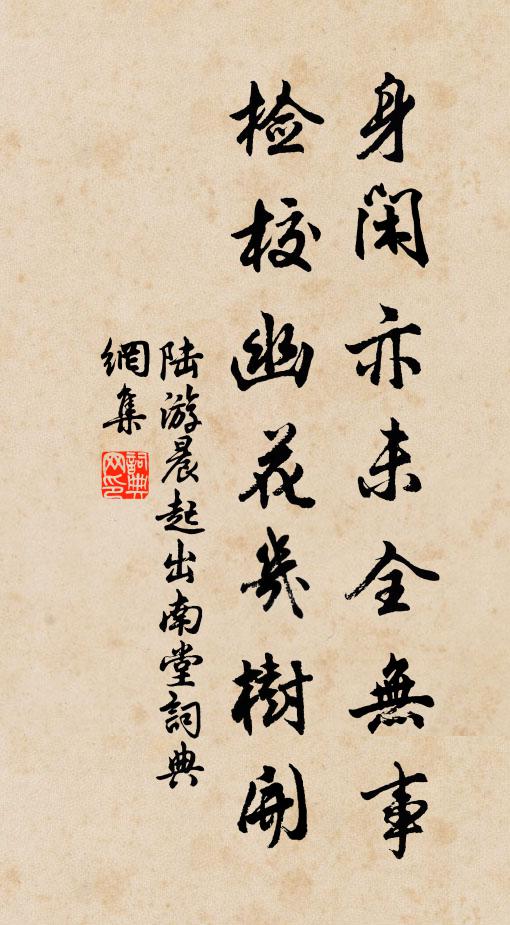 身閑亦未全無事
檢校幽花幾樹開
陆游晨起出南堂詞典
網集
詞典网印